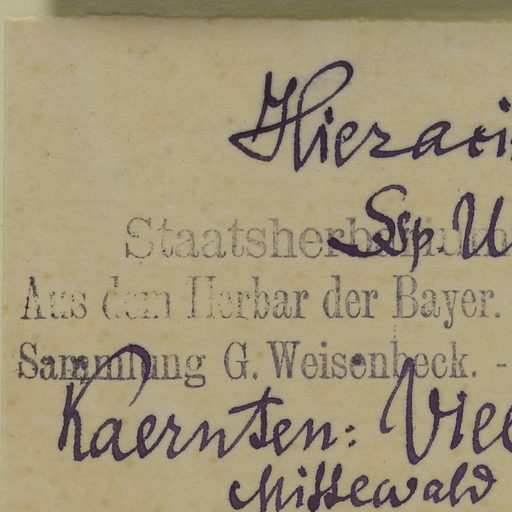 Hieraci
Ssp. U
Staatsherbarium
Aus dem Herbar der Bayer.
Sammlung G. Weisenbeck. -
Kaernten: Vill
Mittewald